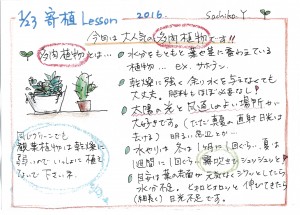 1/23 寄植 Lesson 2016. Sachiko.Y
今回は大人気の多肉植物です!!
多肉植物とは…
水分をもともと葉や茎に蓄えている
植物… ex. サボテン.
乾燥に強く余り水を与えなくても
大丈夫。肥料もほぼ必要なし!
太陽の光と風通しのよい場所が
大好きです。(ただし真夏の直射日光は
さける) 明るい窓辺とか…
水やりは、冬は1ヶ月に1回ぐらい、夏は
1週間に1回ぐらい霧吹きでシュッシュッと!
目安は葉の表面が元気なくシワッとしたら
水分不足。ヒョロヒョロッと伸びてきたら
(細長く) 日光不足です。
同じグリーンでも
観葉植物は乾燥に
弱いので、いっしょに植え
ないで下さい。